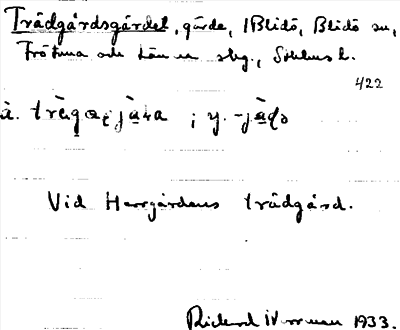 Trädgårdsgärdet, gärde, 1 Blidö, Blidö sn,
Frötuna och Länna slg., Sthlms l.
422
ä. trȧgaɳjäɹa ; y. -jäḍə
Vid Herrgårdens trädgård.
Rickard 1933.